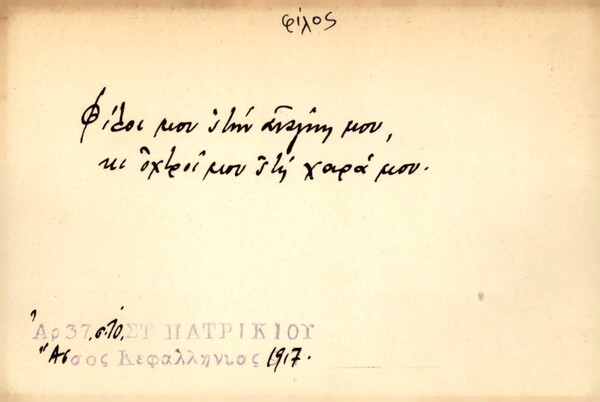 φίλος
Φίλοι μου ὀτὴν ἀνάγκη μου,
κι ὀχτροί μου ὀτὴ χαρά μου.
Ἀρ 37, σ. 10, ΣΤ ΠΑΤΡΙΚΙΟΥ
Ἄσσος Κεφαλληνίας 1917.